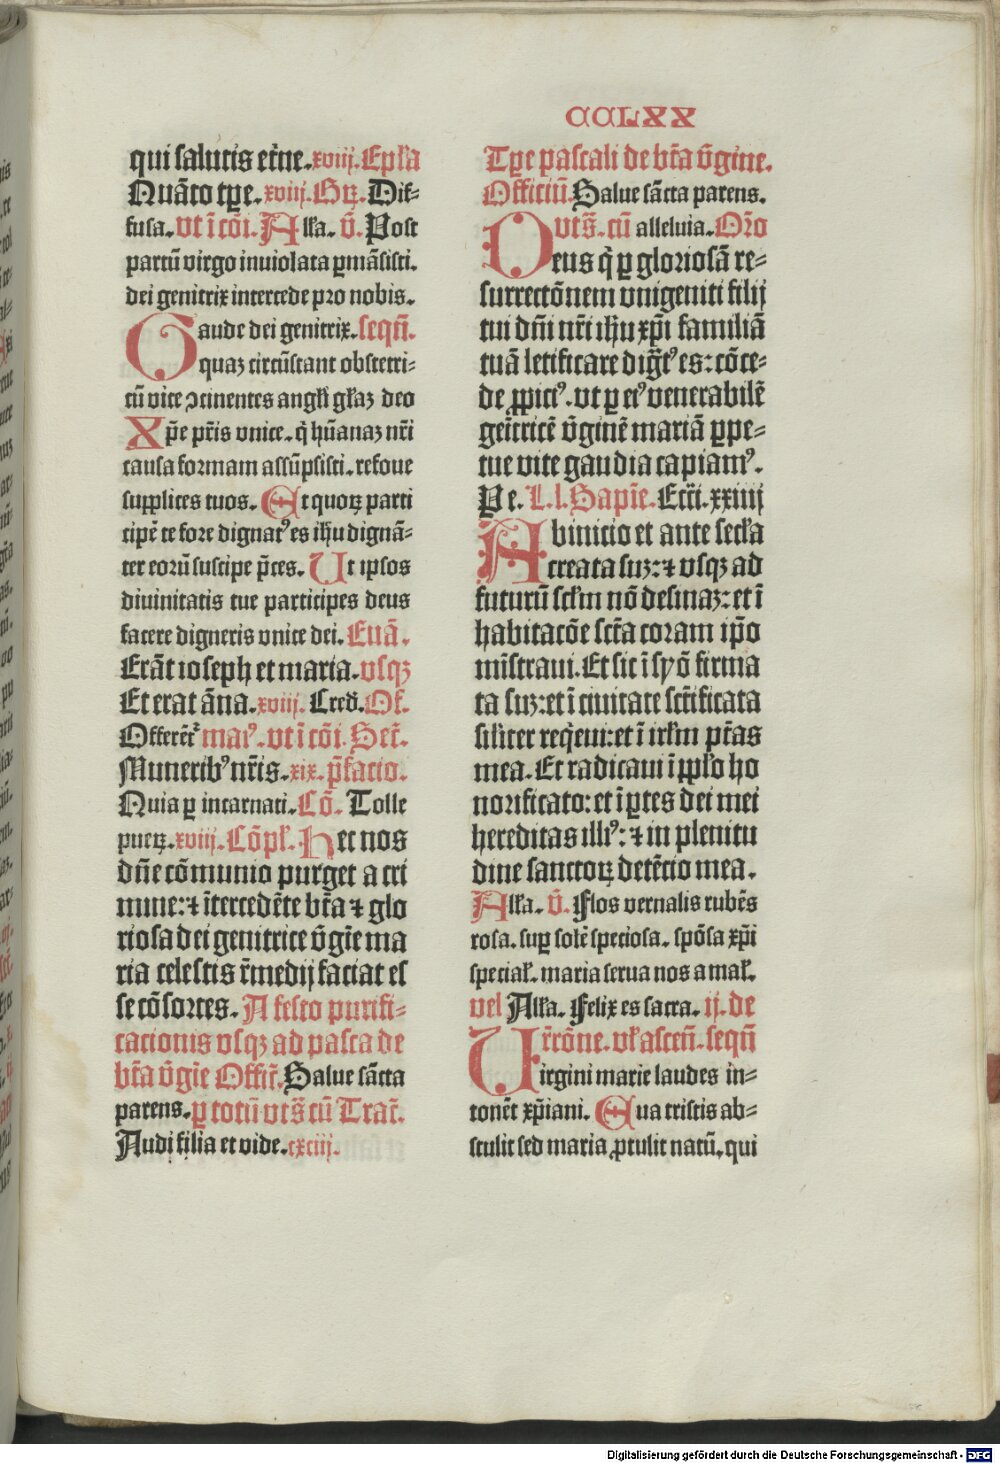 CCLXX
qui salutis et̄ne. xviij. Ep̄ła
Nuāto tp̄e. xviij. Gꝝ. Dif⸗
fusa. vt ī cōi. Ałła. v̄. Post
partū virgo inuiolata ꝑmāsisti.
dei genitrix intercede pro nobis.
Gaude dei genitrix. seqn̄.
quaꝫ circūstant obstetri⸗
cū vice ꝯcinentes angłi głaꝫ deo
Xp̄e pr̄is vnice. q̇ hūanaꝫ nr̄i
causa formam assūpsisti. refoue
supplices tuos. Et quoꝝ parti
cipē te fore dignatꝰ es ihū dignā⸗
ter eorū suscipe p̄ces. Ut ipsos
diuinitatis tue participes deus
facere digneris vnice dei. Euā.
Erāt ioseph et maria. vsqꝫ
Et erat āna. xviij. Cred. Of.
Offerēt᷑ maiꝰ. vt ī cōi. Secr̄.
Muneribꝰ nr̄is. xix. p̄facio.
Quia ꝑ incarnati. Cō. Tolle
pueꝝ. xviij. Cōpł. Hec nos
dn̄e cōmunio purget a cri
mine: ⁊ ītercedēte bt̄a ⁊ glo
riosa dei genitrice v̄gīe ma
ria celestis r̄medij faciat es
se cōsortes. A festo purifi⸗
cacionis vsqꝫ ad pasca de
bt̄a v̄gīe Offic̄. Salue sācta
parens. ꝑ totū vts̄ cū Trac̄.
Audi filia et vide. cxciij.
Tp̄e pascali de bt̄a v̄gine.
Officiū. Salue sācta parens.
vts̄. cū alleluia. Or̄o
Deus q̇ ꝑ gloriosā re⸗
surrectōnem vnigeniti filij
tui dn̄i nr̄i ihū xp̄i familiā
tuā letificare dig̃tꝰ es: cōce⸗
de ꝓpiciꝰ. vt ꝑ eiꝰ venerabilē
geītricē v̄ginē mariā ꝑpe⸗
tue vite gaudia capiamꝰ.
Pe. L. l. Sapīe. Ecc̄i. xxiiij
Ab inicio et ante secła
creata suꝫ: ⁊ vsqꝫ ad
futurū sc̄łm nō desinaꝫ: et ī
habitacōe sc̄ta coram ip̄o
mīstraui. Et sic ī syō firma
ta suꝫ: et ī ciuitate sc̄tificata
siłiter reqeui: et ī irłm pt̄as
mea. Et radicaui ī ꝓpło ho
norificato: et ī ꝑtes dei mei
hereditas illiꝰ: ⁊ in plenitu
dine sanctoꝝ detēcio mea.
Ałła. v̄. Flos vernalis rubēs
rosa. suꝑ solē speciosa. spōsa xp̄i
speciał. maria serua nos a mał.
vel Ałła. Felix es sacra. ij. de
r̄rcōne. vł ascen̄. seqn̄
Uirgini marie laudes in⸗
tonēt xp̄iani. Eua tristis ab⸗
stulit sed maria ꝓtulit natū. qui
Digitalisierung gefördert durch die Deutsche Forschungsgemeinschaft - DFG